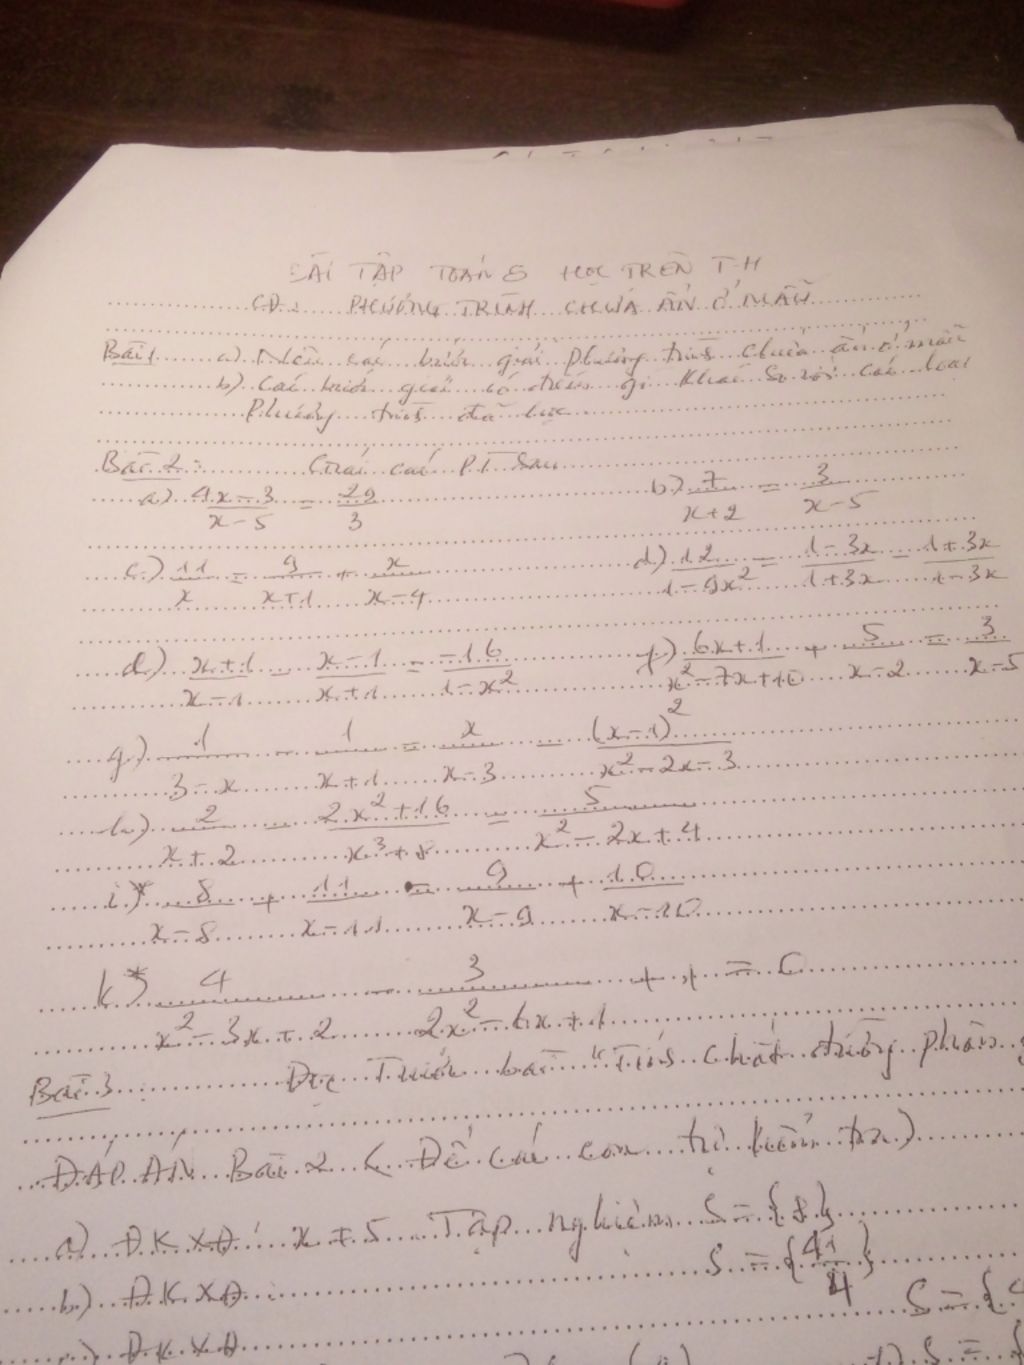 BÀI TẬP TOÁN 8 HỌC TRÊN T-H
CĐ: PHƯƠNG TRÌNH CHỨA ẨN Ở MẪU
Bài 1 a) Nêu các bước giải phương trình chứa ẩn ở mẫu
b) Các bước giải có điểm gì khác so với các loại
phương trình đã học
Bài 2: Giải các PT sau
a) (4x-3)/(x-5) = 29/3 b) 7/(x+2) = 3/(x-5)
c) 11/x = 9/(x+1) + x/(x-4) d) 12/(1-9x²) = (1-3x)/(1+3x) - (1+3x)/(1-3x)
d) (x+1)/(x-1) - (x-1)/(x+1) = -16/(1-x²) f) (6x+1)/(x²-7x+10) + 5/(x-2) = 3/(x-5)
g) 1/(3-x) - 1/(x+1) = x/(x-3) - (x-1)²/(x²-2x-3)
h) 2/(x+2) - (2x²+16)/(x³+8) = 5/(x²-2x+4)
i)* 8/(x-8) + 11/(x-11) = 9/(x-9) + 10/(x-10)
k*) 4/(x²-3x+2) - 3/(2x²-6x+1) + 1 = 0
Bài 3 Đọc trước bài "Tính chất đường phân
ĐÁP ÁN Bài 2 (Để các con tự kiểm tra)
a) ĐKXĐ: x ≠ 5 Tập nghiệm S = {8}
b) ĐKXĐ: S = {41/4}
ĐKXĐ S = {
S = {